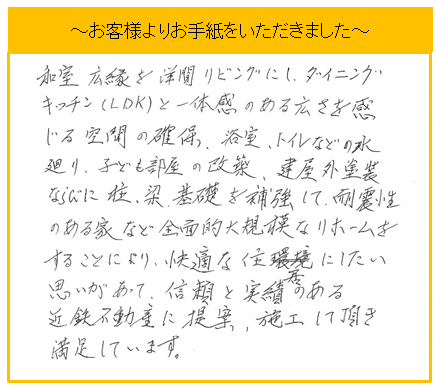 ～お客様よりお手紙をいただきました～
和室 広縁を洋間リビングにし、ダイニング
キッチン(LDK)と一体感のある広さを感
じる空間の確保、浴室、トイレなどの水
廻り、子ども部屋の改築、建屋外塗装
ならびに柱、梁、基礎を補強して、耐震性
のある家など全面的大規模なリホームを
することにより、快適な住環境にしたい
思いがあって、信頼と実績のある
近鉄不動産に提案、施工して頂き
満足しています。